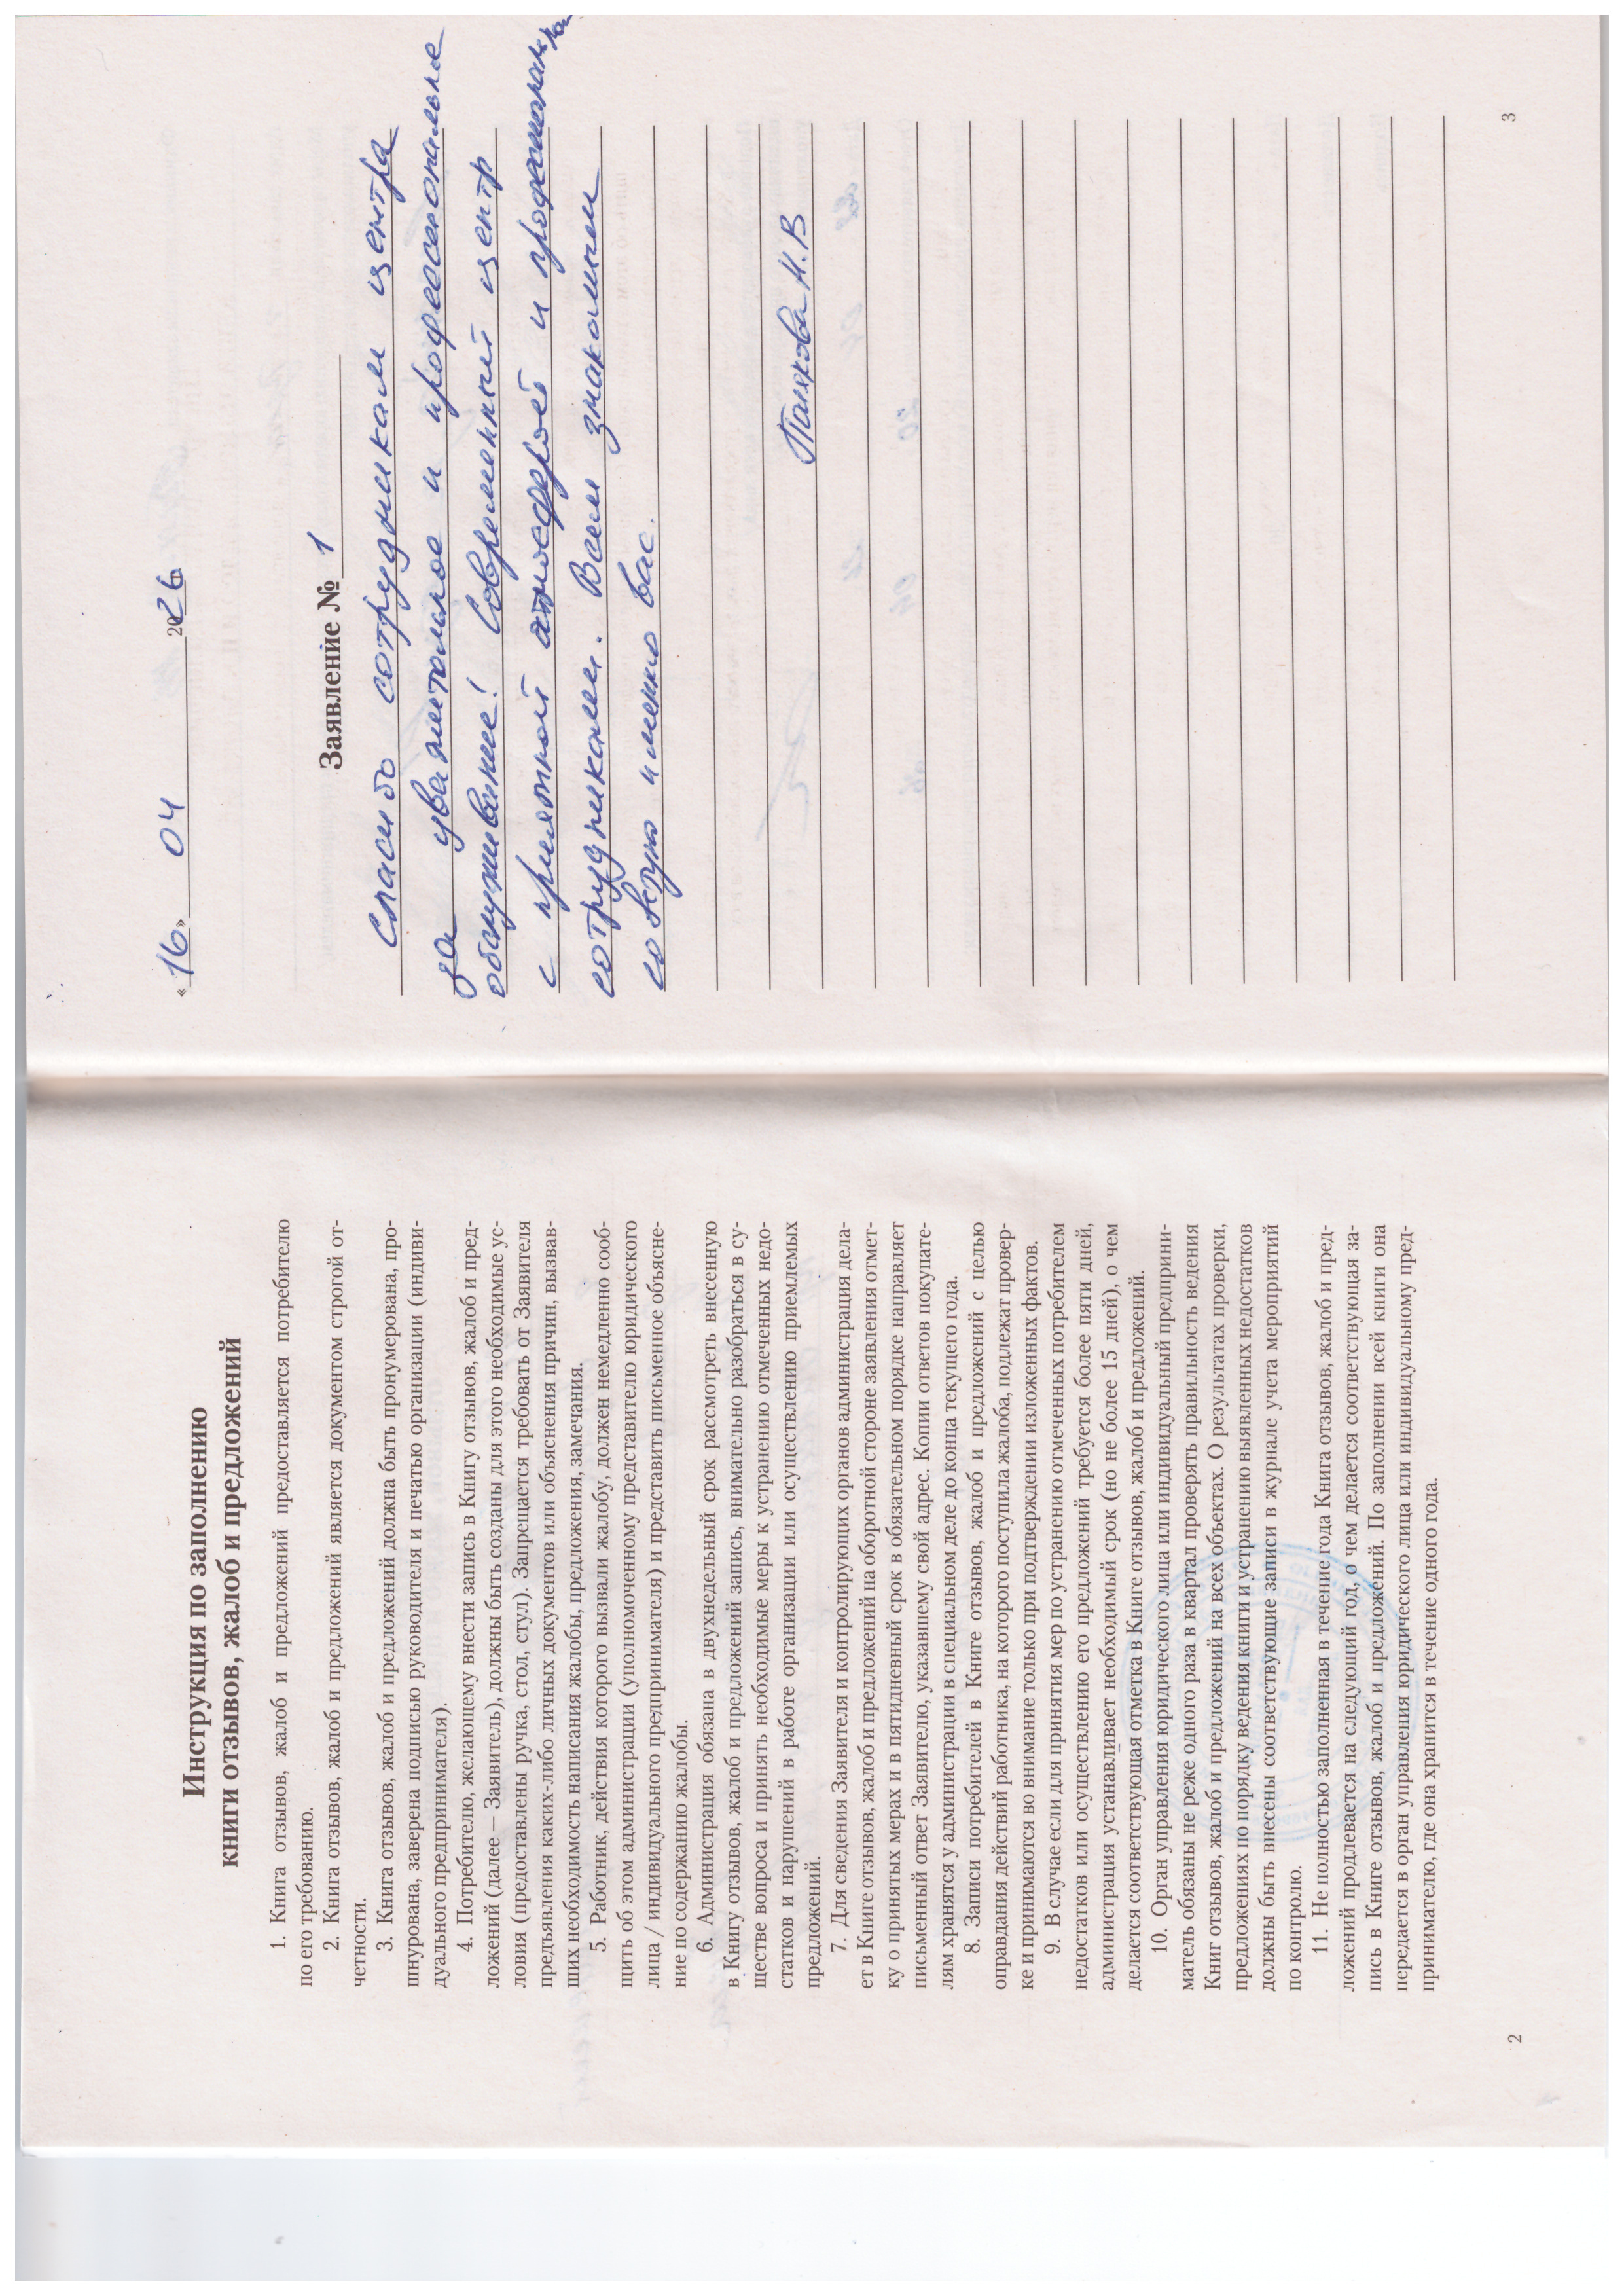 Инструкция по заполнению
книги отзывов, жалоб и предложений
1. Книга отзывов, жалоб и предложений предоставляется потребителю
по его требованию.
2. Книга отзывов, жалоб и предложений является документом строгой от-
четности.
3. Книга отзывов, жалоб и предложений должна быть пронумерована, про-
шнурована, заверена подписью руководителя и печатью организации (индиви-
дуального предпринимателя).
4. Потребителю, желающему внести запись в Книгу отзывов, жалоб и пред-
ложений (далее — Заявитель), должны быть созданы для этого необходимые ус-
ловия (предоставлены ручка, стол, стул). Запрещается требовать от Заявителя
предъявления каких-либо личных документов или объяснения причин, вызвав-
ших необходимость написания жалобы, предложения, замечания.
5. Работник, действия которого вызвали жалобу, должен немедленно сооб-
щить об этом администрации (уполномоченному представителю юридического
лица / индивидуального предпринимателя) и представить письменное объясне-
ние по содержанию жалобы.
6. Администрация обязана в двухнедельный срок рассмотреть внесенную
в Книгу отзывов, жалоб и предложений запись, внимательно разобраться в су-
ществе вопроса и принять необходимые меры к устранению отмеченных недо-
статков и нарушений в работе организации или осуществлению приемлемых
предложений.
7. Для сведения Заявителя и контролирующих органов администрация дела-
ет в Книге отзывов, жалоб и предложений на оборотной стороне заявления отмет-
ку о принятых мерах и в пятидневный срок в обязательном порядке направляет
письменный ответ Заявителю, указавшему свой адрес. Копии ответов покупате-
лям хранятся у администрации в специальном деле до конца текущего года.
8. Записи потребителей в Книге отзывов, жалоб и предложений с целью
оправдания действий работника, на которого поступила жалоба, подлежат провер-
ке и принимаются во внимание только при подтверждении изложенных фактов.
9. В случае если для принятия мер по устранению отмеченных потребителем
недостатков или осуществлению его предложений требуется более пяти дней,
администрация устанавливает необходимый срок (но не более 15 дней), о чем
делается соответствующая отметка в Книге отзывов, жалоб и предложений.
10. Орган управления юридического лица или индивидуальный предприни-
матель обязаны не реже одного раза в квартал проверять правильность ведения
Книг отзывов, жалоб и предложений на всех объектах. О результатах проверки,
предложениях по порядку ведения книги и устранению выявленных недостатков
должны быть внесены соответствующие записи в журнале учета мероприятий
по контролю.
11. Не полностью заполненная в течение года Книга отзывов, жалоб и пред-
ложений продлевается на следующий год, о чем делается соответствующая за-
пись в Книге отзывов, жалоб и предложений. По заполнении всей книги она
передается в орган управления юридического лица или индивидуальному пред-
принимателю, где она хранится в течение одного года.
2
«16» 04 2026
Заявление № 1
Спасибо сотрудникам центра
за уважительное и профессиональное
обслуживание! Современный центр
с приятной атмосферой и профессиональн
сотрудниками. Всем знакомым
советую именно вас.
Полякова Н.В
3